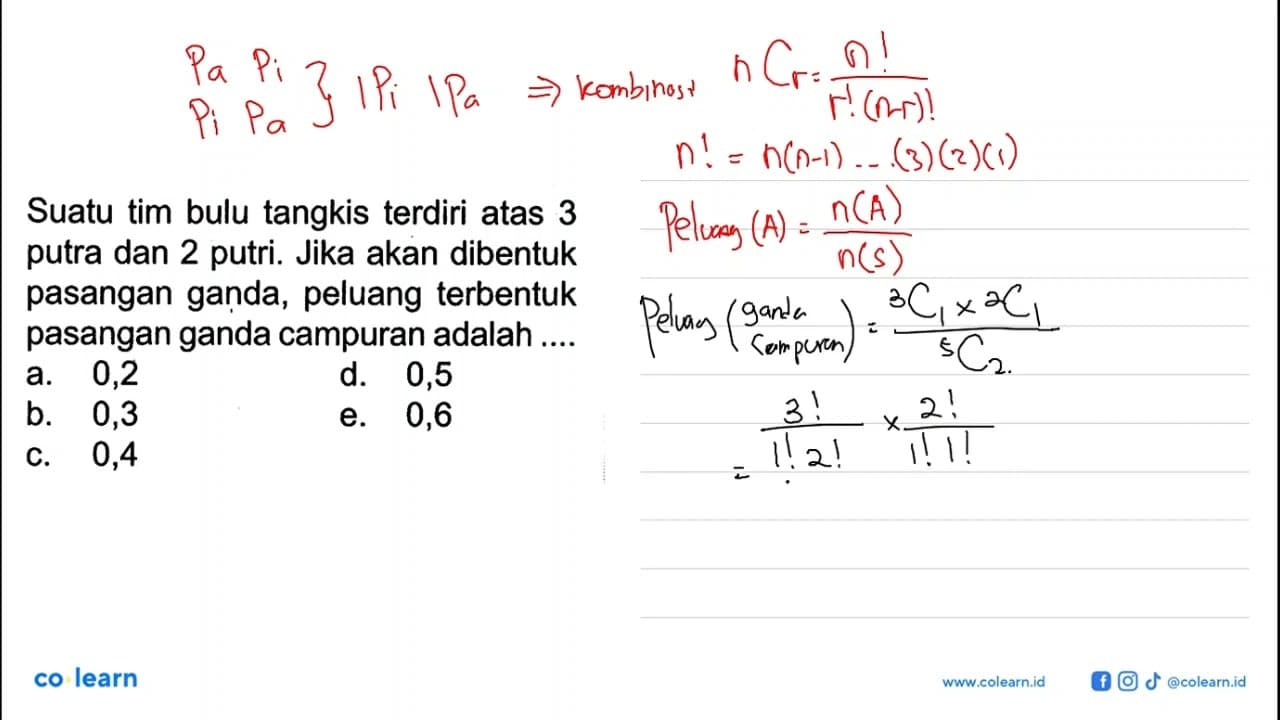 Pa Pi
Pi Pa } 1Pi 1Pa ⇒ kombinasi nCr = n! / r!(n-r)!
n! = n(n-1) ... (3)(2)(1)
Suatu tim bulu tangkis terdiri atas 3
putra dan 2 putri. Jika akan dibentuk
pasangan ganda, peluang terbentuk
pasangan ganda campuran adalah ....
a. 0,2 d. 0,5
b. 0,3 e. 0,6
c. 0,4
Peluang (A) = n(A) / n(S)
Peluang (ganda campuran) = 3C1 x 2C1 / 5C2.
= 3! / 1! 2! x 2! / 1! 1!
co learn
www.colearn.id @colearn.id